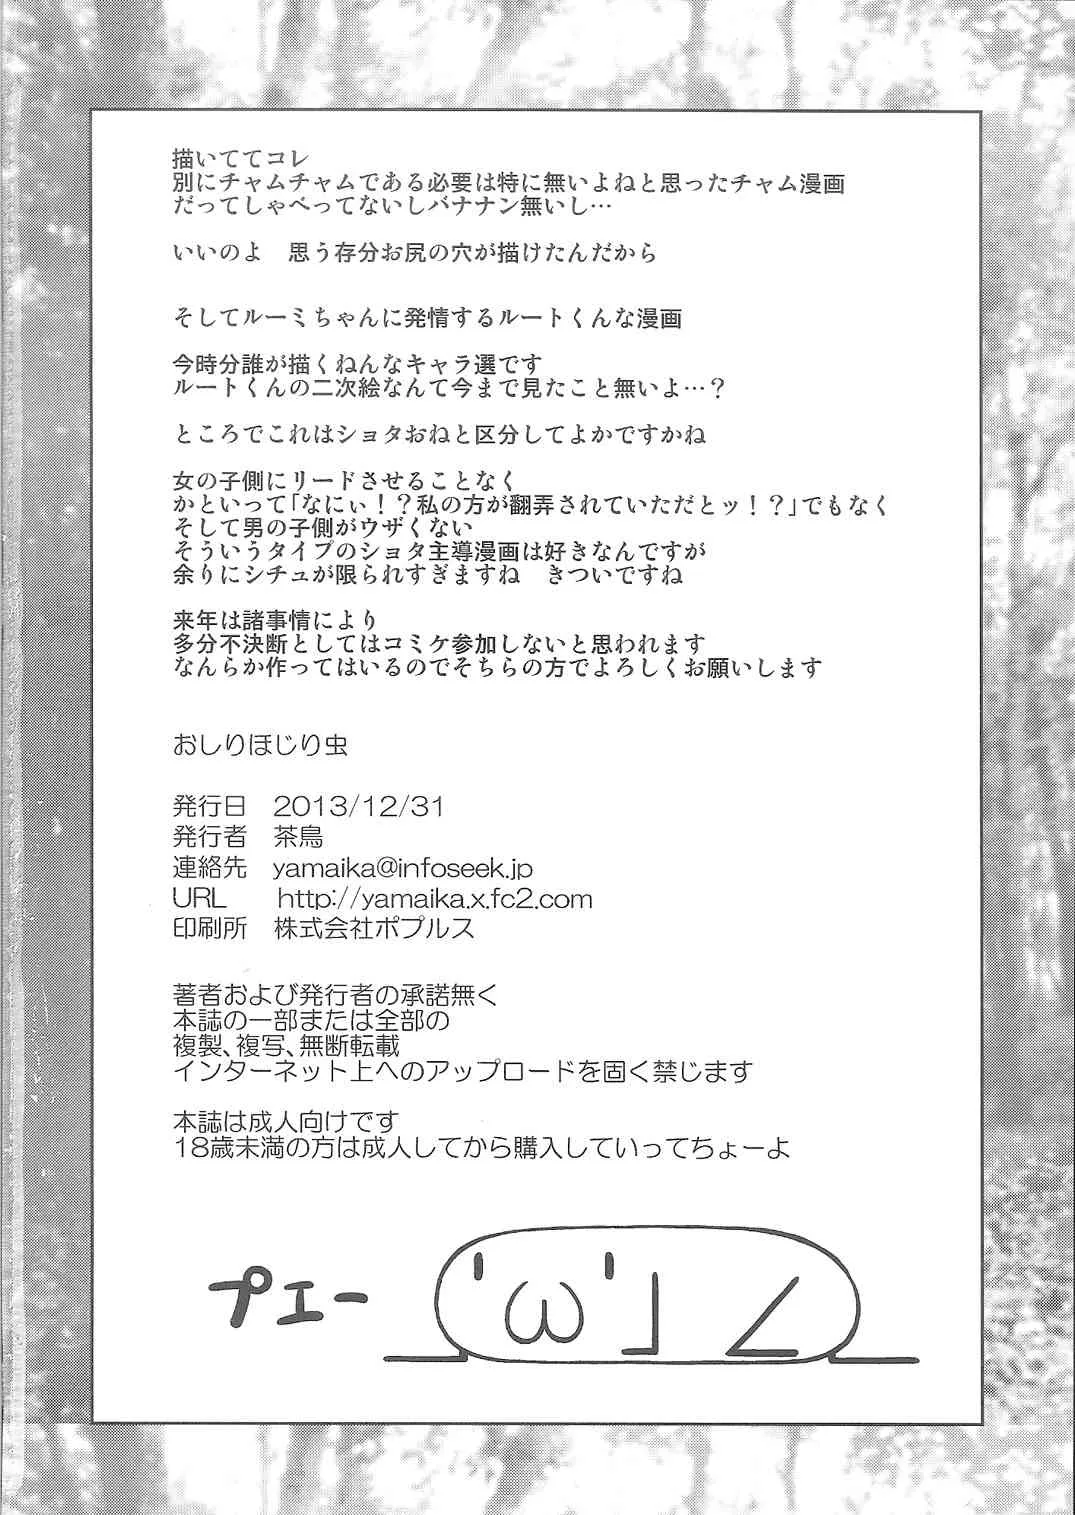 描いててコレ
別にチャムチャムである必要は特に無いよねと思ったチャム漫画
だってしゃべってないしバナナン無いし…
いいのよ　思う存分お尻の穴が描けたんだから
そしてルーミちゃんに発情するルートくんな漫画
今時分誰が描くねんなキャラ選です
ルートくんの二次絵なんて今まで見たこと無いよ…？
ところでこれはショタおねと区分してよかですかね
女の子側にリードさせることなく
かといって「なにぃ！？私の方が翻弄されていただとッ！？」でもなく
そして男の子側がウザくない
そういうタイプのショタ主導漫画は好きなんですが
余りにシチュが限られすぎますね　きついですね
来年は諸事情により
多分不決断としてはコミケ参加しないと思われます
なんらか作ってはいるのでそちらの方でよろしくお願いします
おしりほじり虫
発行日　2013/12/31
発行者　茶鳥
連絡先　yamaika@infoseek.jp
URL　http://yamaika.x.fc2.com
印刷所　株式会社ポプルス
著者および発行者の承諾無く
本誌の一部または全部の
複製、複写、無断転載
インターネット上へのアップロードを固く禁じます
本誌は成人向けです
18歳未満の方は成人してから購入していってちょーよ
プエー